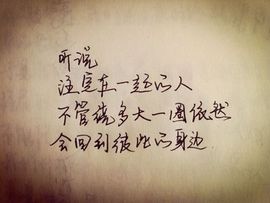 听说
注定在一起的人
不管绕多大一圈依然
会回到彼此的身边